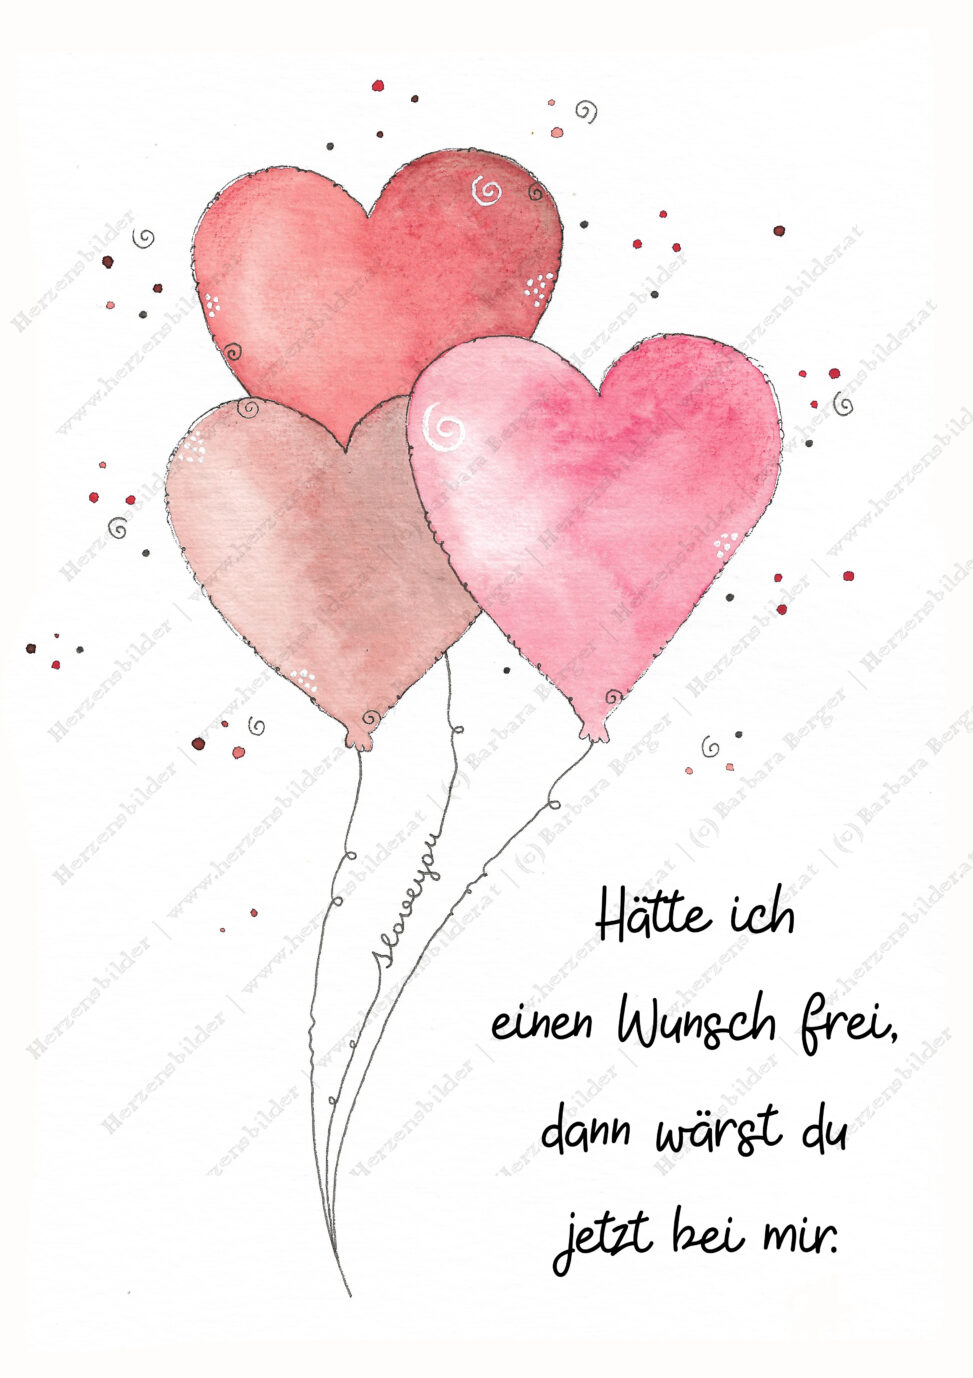 I love you
Hätte ich
einen Wunsch frei,
dann wärst du
jetzt bei mir.
Herzensbilder | www.herzensbilder.at | (c) Barbara Berger | Herzensbilder | www.herzensbilder.at